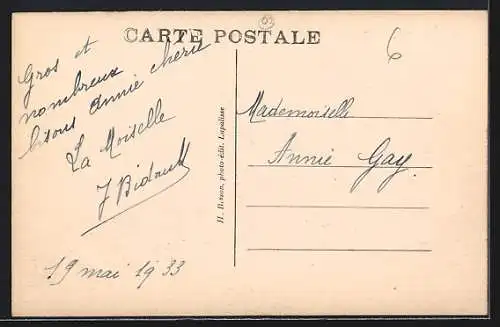 CARTE POSTALE
6
Gros et
nombreux
bisous Annie chérie
La Moiselle
J Bidault
19 mai 1933
H. Basson, photo-édit. Lapalisse
Mademoiselle
Annie Gay